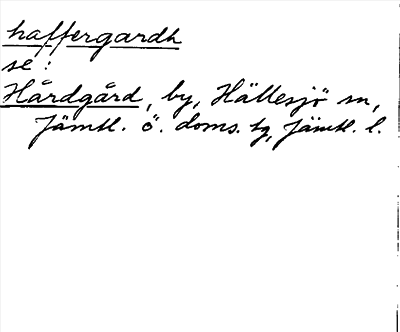 haffergardh
se:
Hårdgård, by, Hällesjö sn,
Jämtl. ö. doms. tg, Jämtl. l.